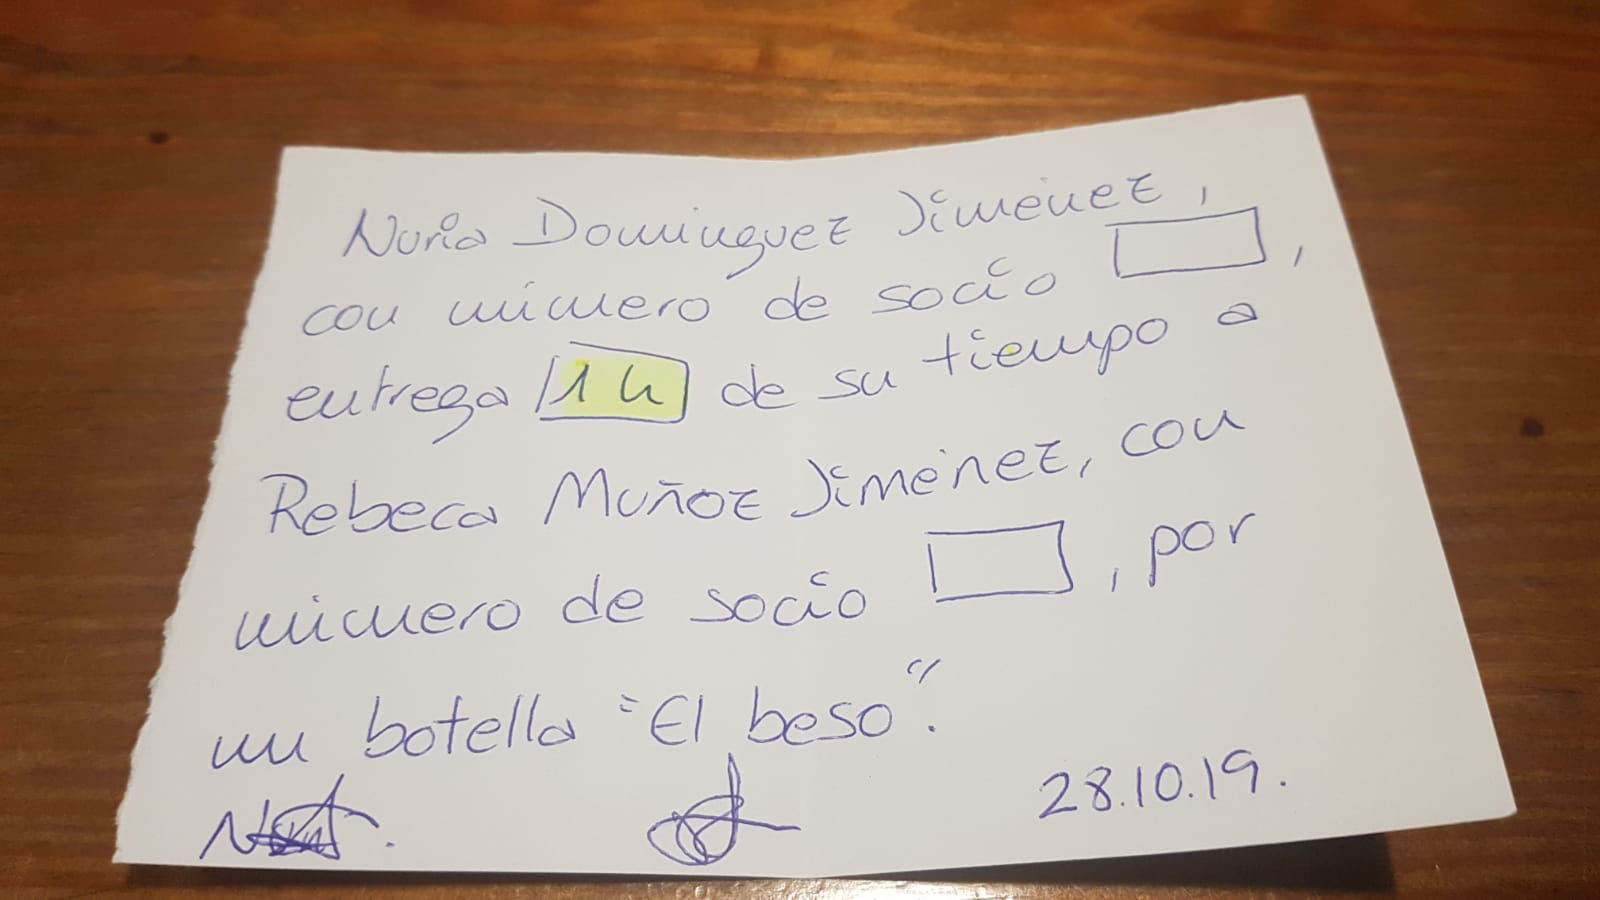 Nuria Dominguez Jiménez,
con número de socio ,
entrega 1h de su tiempo a
Rebeca Muñoz Jiménez, con
número de socio , por
un botella "El beso".
28.10.19.